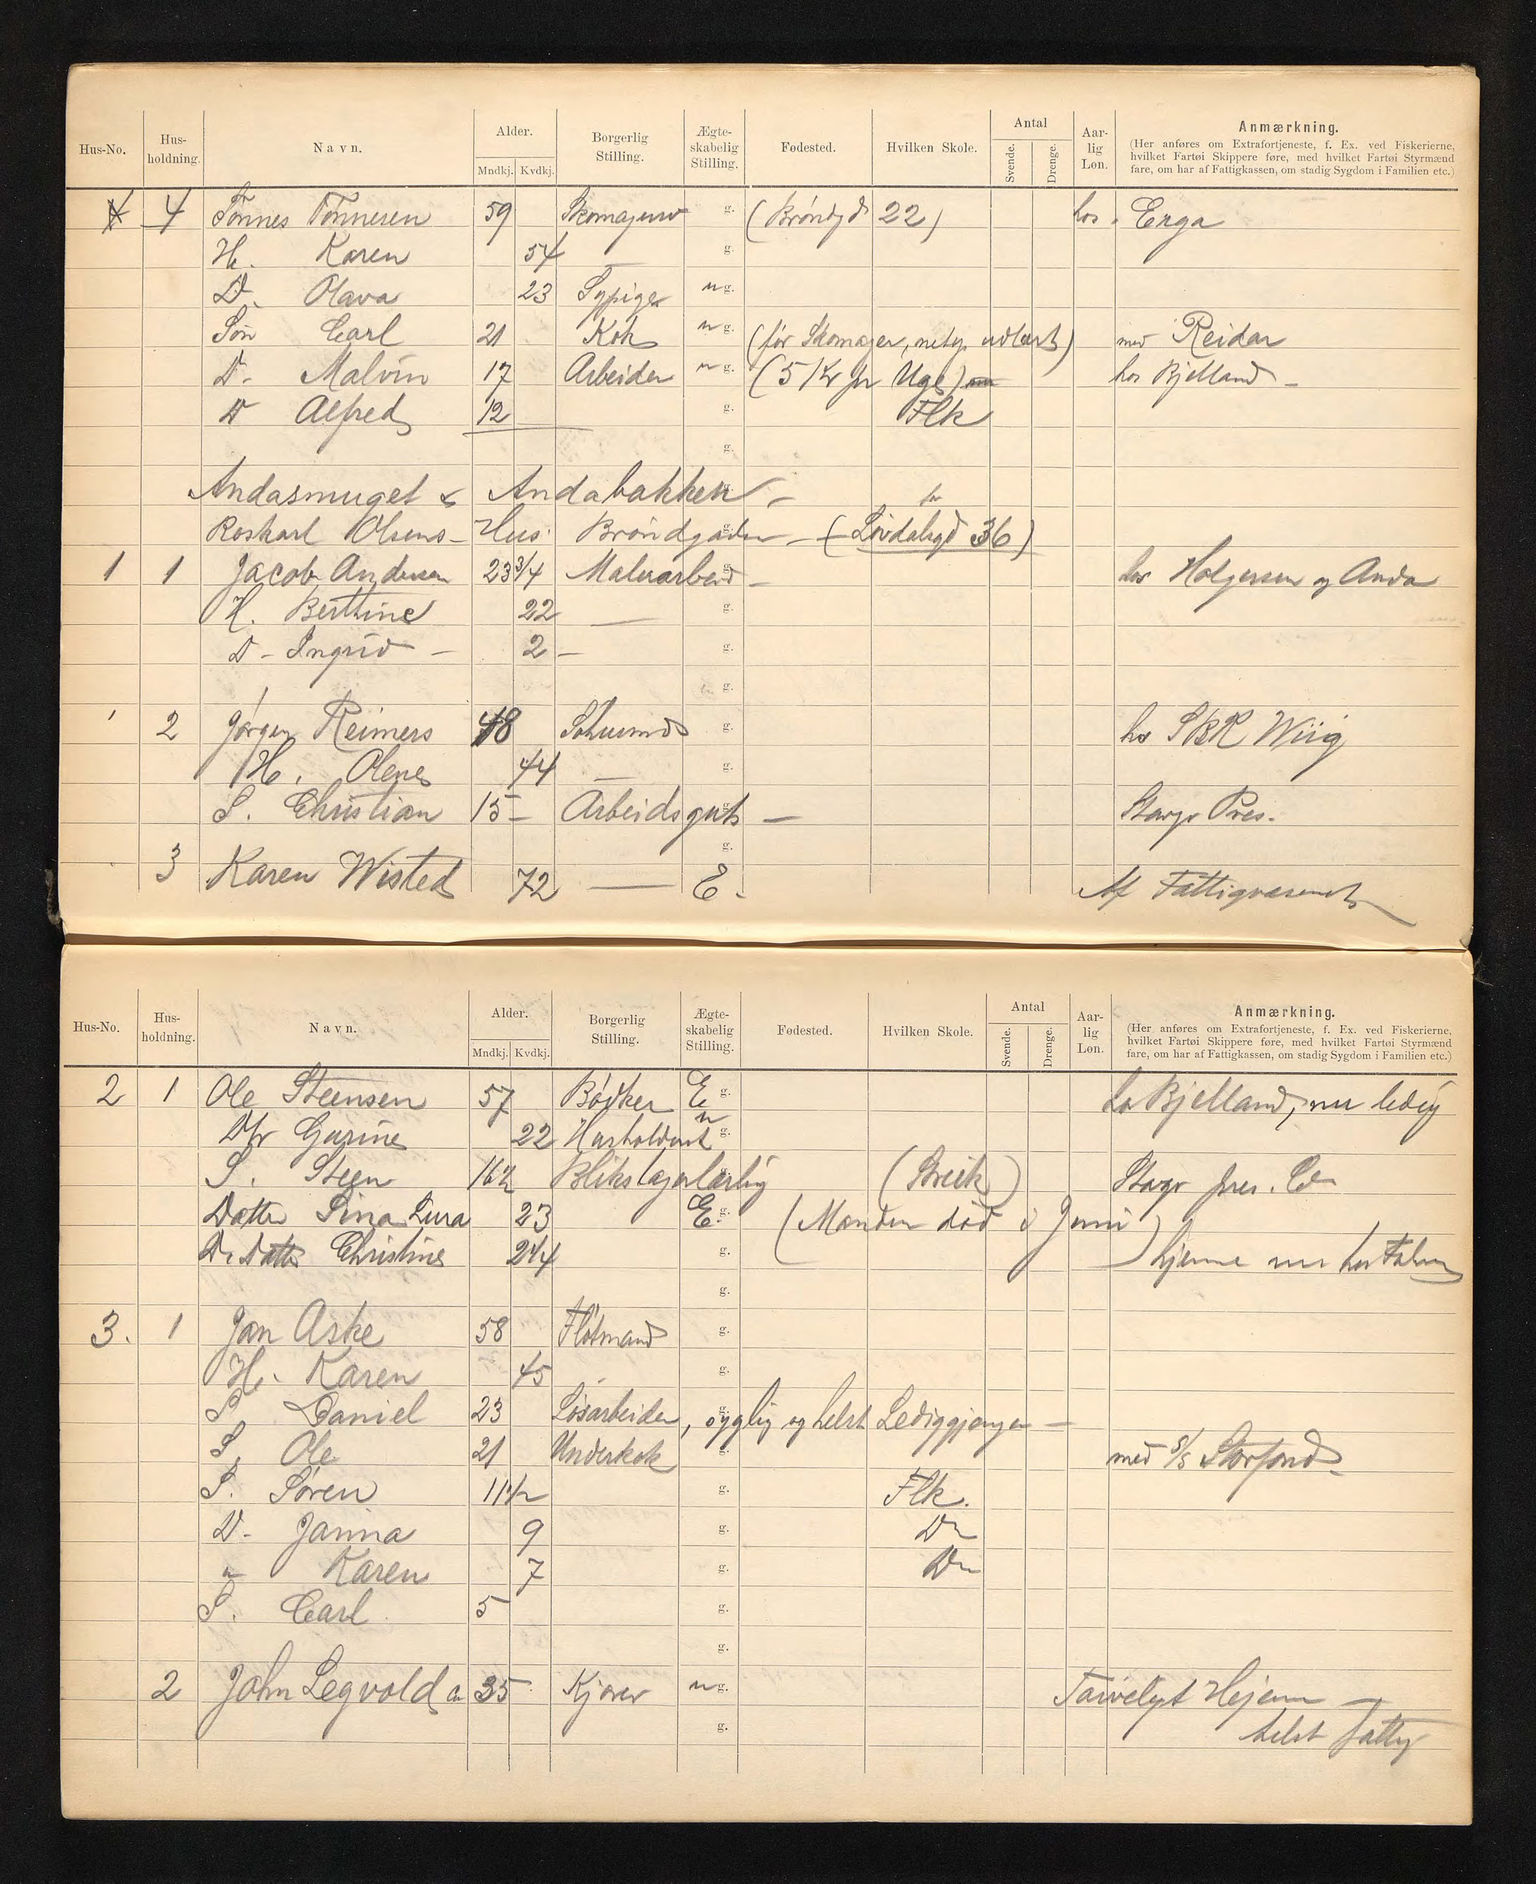 Hus-No. Hus-holdning. Navn. Alder. Mndkj. Kvdkj. Borgerlig Stilling. Ægte-skabelig Stilling. Fødested. Hvilken Skole. Antal Svende. Drenge. Aar-lig Løn. Anmærkning.
(Her anføres om Extrafortjeneste, f. Ex. ved Fiskerierne,
hvilket Fartøi Skippere føre, med hvilket Fartøi Styrmænd
fare, om har af Fattigkassen, om stadig Sygdom i Familien etc.)
4 Tønnes Tønnesen 59 g. (Brøndgd 22) hos Erga
H. Karen 54 — g.
D. Olava 23 Sypige u g.
Søn Carl 21 Kok u g. (før Skomager, netop udlært) med Reidar
D. Malvin 17 Arbeider u g. (5 Kr pr Uge) hos Bjelland –
D Alfred 12 g. Flk
g.
Andasmuget & Andabakken –
Olsens Hus Brøndgaden – (Løvdahlsgd 36)
1 1 Jacob Andersen 23 3/4 Malerarbeid – hos Holgersen og Anda
H. Berthine 22 — g.
D – Ingrid – 2 – g.
g.
1 2 Jørgen Reimers 48 g. hos SBR Wiig
H. Olene 44 — g.
S. Christian 15 – Arbeidsgut – Stavgr Pres.
g.
3 Karen Wisted 72 — E. Af Fattigvæsenet
Hus-No. Hus-holdning. Navn. Alder. Mndkj. Kvdkj. Borgerlig Stilling. Ægte-skabelig Stilling. Fødested. Hvilken Skole. Antal Svende. Drenge. Aar-lig Løn. Anmærkning.
(Her anføres om Extrafortjeneste, f. Ex. ved Fiskerierne,
hvilket Fartøi Skippere føre, med hvilket Fartøi Styrmænd
fare, om har af Fattigkassen, om stadig Sygdom i Familien etc.)
2 1 Ole Steensen 57 Bødker E g. hos Bjelland, nu ledig
Dtr Gurine 22 Husholderske u g.
S. Steen 16 1/2 Blikslagerlærling (Streik) Stavgr pres. Co
Datter Sina Lura 23 E g. (Manden død i Juni)
D. Datter Christine 2 1/4 g. hjemme nu hos Faderen
g.
3. 1 Jan Aske 58 Fløtmand g.
H. Karen 45 g.
S Daniel 23 Løsarbeider, sygelig og helst Lediggjænger —
S. Ole 21 Underkok g. med S/S Storfond
S. Søren 11 1/2 g. Flk.
D. Janna 9 g. Do
" Karen 7 g. Do
S. Carl 5 g.
g.
2 John Legvold 35 Kjører u g. Hjem —
g. helst